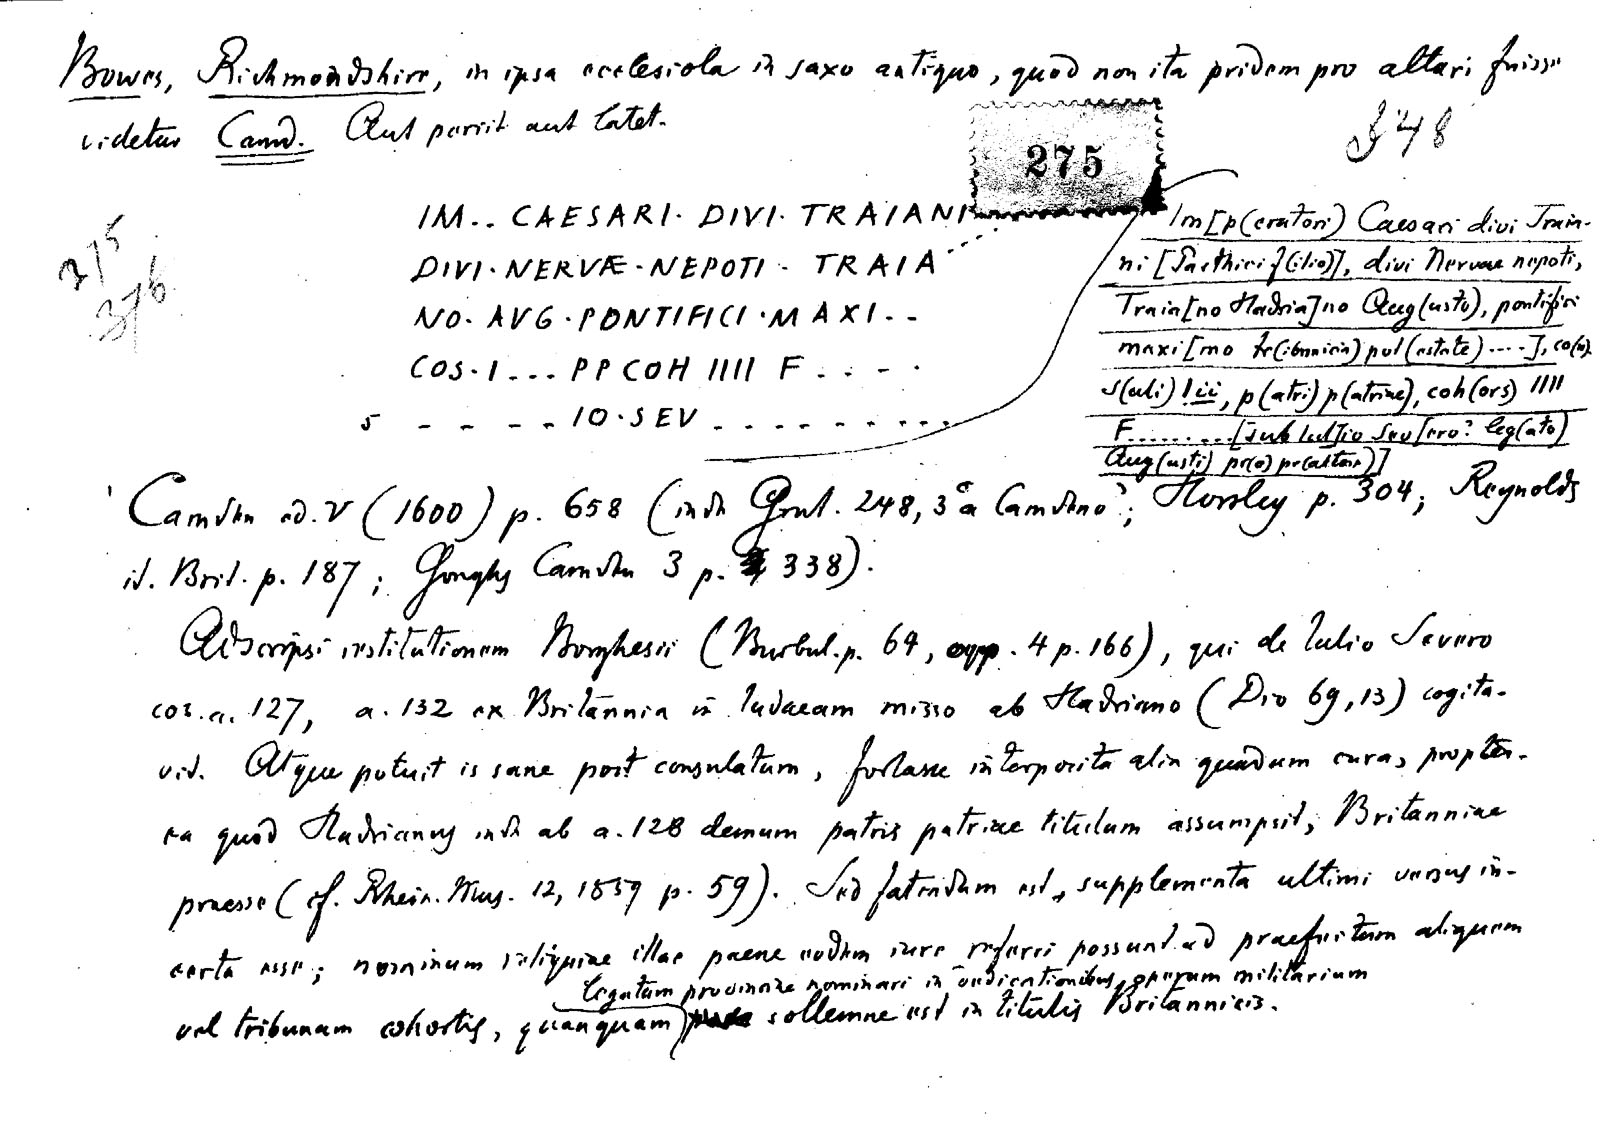 Bowes, Richmondshire, in ipsa ecclesiola in saxo antiquo, quod non ita pridem pro altari fuisse
videtur Camd. Aut periit aut latet.
275
348
275
376
IM.. CAESARI· DIVI· TRAIANI
DIVI·NERVÆ·NEPOTI· TRAIA
NO· AVG·PONTIFICI·MAXI..
COS·I... PP COH IIII F.....
5 ..... IO·SEV ..........
Im[p(eratori) Caesari divi Traia-
ni [Parthici f(ilio)], divi Nervae nepoti,
Traia[no Hadria]no Aug(usto), pontifici
maxi[mo tr(ibunicia) pot(estate) ....], co(n)
s(uli) Iii, p(atri) p(atriae), coh(ors) IIII
F.........[sub Iul]io Sev[ero? leg(ato)
Aug(usti) pr(o) pr(aetore)]
Camden ed. V (1600) p. 658 (inde Grut. 248, 3 'a Camdeno'; Horsley p. 304; Reynolds
it. Brit. p. 187; Goughs Camden 3 p. 338).
Adscripsi restitutionem Borghesii (Burbul. p. 64, opp. 4 p. 166), qui de Iulio Severo
cos. a. 127, a. 132 ex Britannia in Iudaeam misso ab Hadriano (Dio 69, 13) cogita-
vit. Atque potuit is sane post consulatum, fortasse interposita alia quadam cura, propter-
ea quod Hadrianus inde ab a. 128 demum patris patriae titulum assumpsit, Britanniae
praeesse (cf. Rhein. Mus. 12, 1857 p. 59). Sed fatendum est, supplementa ultimi versus in-
certa esse; nominum reliquiae illae paene eodem iure referri possunt ad praefectum aliquem
legatum provinciae nominari in dedicationibus operum militarium
vel tribunum cohortis, quanquam sollemne est in titulis Britannicis.